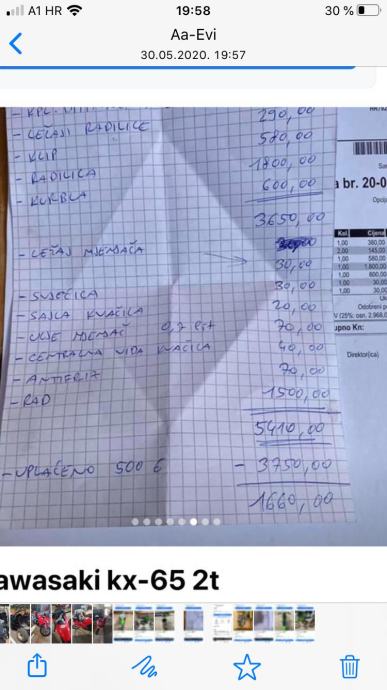 A1 HR 19:58 30 %
Aa-Evi
30.05.2020. 19:57
290,00
- LEŽAJI RADILICE 580,00
- KLIP
- RADILICA 1800,00
- KURBLA 600,00
3650,00
- LEŽAJ MJENJAČA 30,00
- SVJEĆICA 30,00
- SAJLA KVAČILA 20,00
- ULJE MJENJAČ 0,7 70,00
- CENTRALNA VIDA KVAČILA 40,00
- ANTIFRIZ 70,00
- RAD 1500,00
5410,00
- UPLAĆENO 500 € - 3750,00
1660,00
a br. 20-0
Kol. Cijena
1,00 360,00
2,00 145,00
1,00 580,00
1,00 1.800,00
1,00 600,00
1,00 30,00
1,00 30,00
Odobreni p
V (25%: osn. 2.968,0
upno Kn:
Direktor(ica)
awasaki kx-65 2t